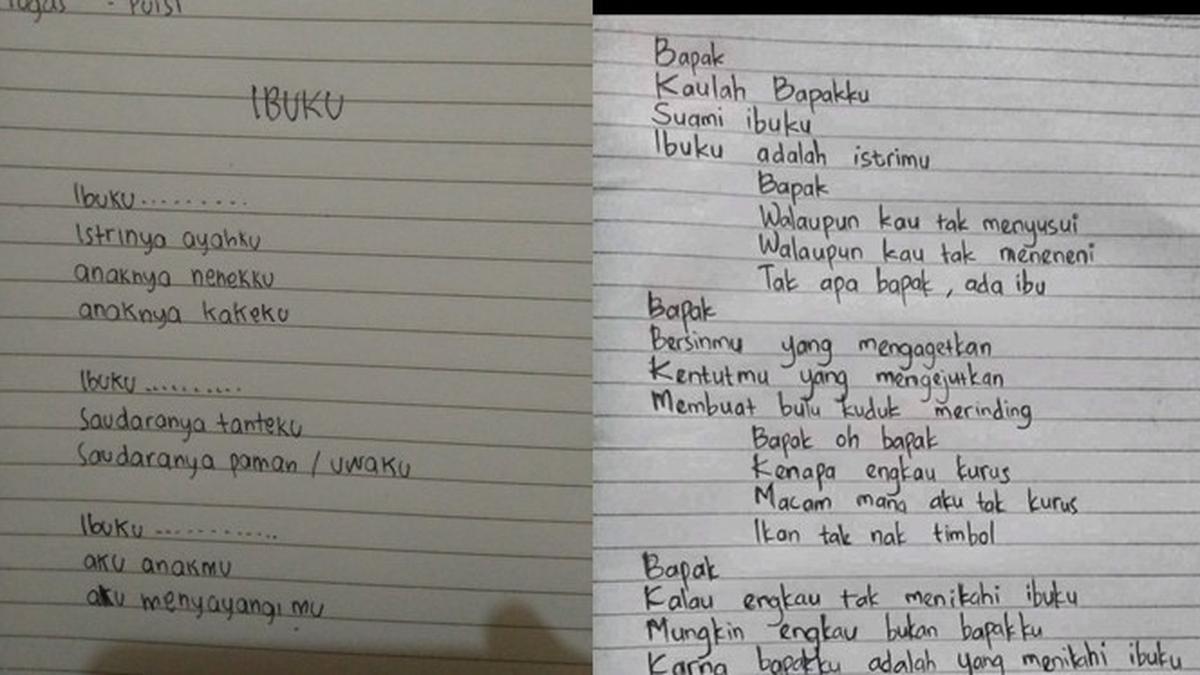 Tugas - Puisi
IBUKU
Ibuku.........
Istrinya ayahku
anaknya nenekku
anaknya kakeku
Ibuku..........
Saudaranya tanteku
Saudaranya paman / uwaku
Ibuku ............
aku anakmu
aku menyayangi mu
Bapak
Kaulah Bapakku
Suami ibuku
Ibuku adalah istrimu
Bapak
Walaupun kau tak menyusui
Walaupun kau tak meneneni
Tak apa bapak, ada ibu
Bapak
Bersinmu yang mengagetkan
Kentutmu yang mengejutkan
Membuat bulu kuduk merinding
Bapak oh bapak
Kenapa engkau kurus
Macam mana aku tak kurus
Ikan tak nak timbol
Bapak
Kalau engkau tak menikahi ibuku
Mungkin engkau bukan bapakku
Karna bapakku adalah yang menikahi ibuku